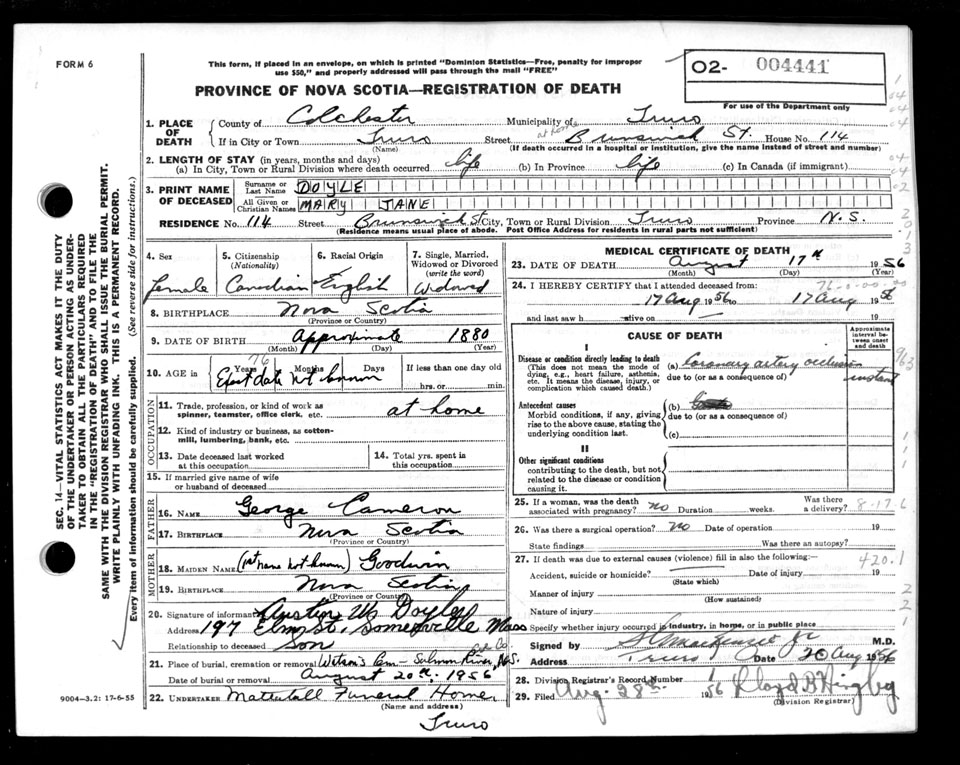 FORM 6
This form, if placed in an envelope, on which is printed "Dominion Statistics—Free, penalty for improper
use $50," and properly addressed will pass through the mail "FREE"
O2- 004441
For use of the Department only
PROVINCE OF NOVA SCOTIA—REGISTRATION OF DEATH
1. PLACE OF DEATH
County of Colchester Municipality of Truro
If in City or Town Truro Street at home Brunswick St. House No. 114
(Name) (If death occurred in a hospital or institution, give the name instead of street and number)
2. LENGTH OF STAY (in years, months and days)
(a) In City, Town or Rural Division where death occurred life (b) In Province life (c) In Canada (if immigrant)
3. PRINT NAME OF DECEASED
Surname or Last Name DOYLE
All Given or Christian Names MARY JANE
RESIDENCE No. 114 Street Brunswick St City, Town or Rural Division Truro Province N.S.
(Residence means usual place of abode. Post Office Address for residents in rural parts not sufficient)
4. Sex
Female
5. Citizenship
(Nationality)
Canadian
6. Racial Origin
English
7. Single, Married, Widowed or Divorced
(write the word)
Widowed
8. BIRTHPLACE Nova Scotia
(Province or Country)
9. DATE OF BIRTH Approximate 1880
(Month) (Day) (Year)
10. AGE in Years Months Days If less than one day old
76
Exact date not known hrs. or min.
OCCUPATION
11. Trade, profession, or kind of work as
spinner, teamster, office clerk, etc. at home
12. Kind of industry or business, as cotton-
mill, lumbering, bank, etc.
13. Date deceased last worked
at this occupation
14. Total yrs. spent in
this occupation
15. If married give name of wife
or husband of deceased
FATHER
16. NAME George Cameron
17. BIRTHPLACE Nova Scotia
(Province or Country)
MOTHER
18. MAIDEN NAME (1st name not known) Goodwin
19. BIRTHPLACE Nova Scotia
(Province or Country)
20. Signature of informant Austin W. Doyle
Address 197 Elm St., Somerville Mass
Relationship to deceased Son
21. Place of burial, cremation or removal Cem - Salmon River, N.S.
Col. Co.
Date of burial or removal August 20th, 1956
22. UNDERTAKER Mattatall Funeral Home,
(Name and address)
Truro
9004—3.2: 17-6-55
MEDICAL CERTIFICATE OF DEATH
23. DATE OF DEATH August 17th 1956
(Month) (Day) (Year)
24. I HEREBY CERTIFY that I attended deceased from:
76-0-00-00
17 Aug 1956 to 17 Aug 1956
and last saw h alive on 19
CAUSE OF DEATH
Approximate interval between onset and death
I
Disease or condition directly leading to death
(This does not mean the mode of
dying, e.g., heart failure, asthenia,
etc. It means the disease, injury, or
complication which caused death.)
(a) Coronary artery occlusion instant
due to (or as a consequence of)
Antecedent causes
Morbid conditions, if any, giving
rise to the above cause, stating the
underlying condition last.
(b)
due to (or as a consequence of)
(c)
II
Other significant conditions
contributing to the death, but not
related to the disease or condition
causing it.
25. If a woman, was the death
associated with pregnancy? no Duration weeks. Was there
a delivery? 8-17 6
26. Was there a surgical operation? no Date of operation 19
State findings Was there an autopsy?
27. If death was due to external causes (violence) fill in also the following:—
420.1
Accident, suicide or homicide? Date of injury 19
(State which)
Manner of injury
(How sustained)
Nature of injury
Specify whether injury occurred in industry, in home, or in public place
Signed by MacKenzie Jr M.D.
Address Truro Date 20 Aug 1956
28. Division Registrar's Record Number
29. Filed Aug. 28th 1956 Lloyd B.
(Division Registrar)
SEC. 14—VITAL STATISTICS ACT MAKES IT THE DUTY
OF THE UNDERTAKER OR PERSON ACTING AS UNDER-
TAKER TO OBTAIN ALL THE PARTICULARS REQUIRED
IN THE "REGISTRATION OF DEATH" AND TO FILE THE
SAME WITH THE DIVISION REGISTRAR WHO SHALL ISSUE THE BURIAL PERMIT.
WRITE PLAINLY WITH UNFADING INK. THIS IS A PERMANENT RECORD.
Every item of information should be carefully supplied. (See reverse side for instructions.)